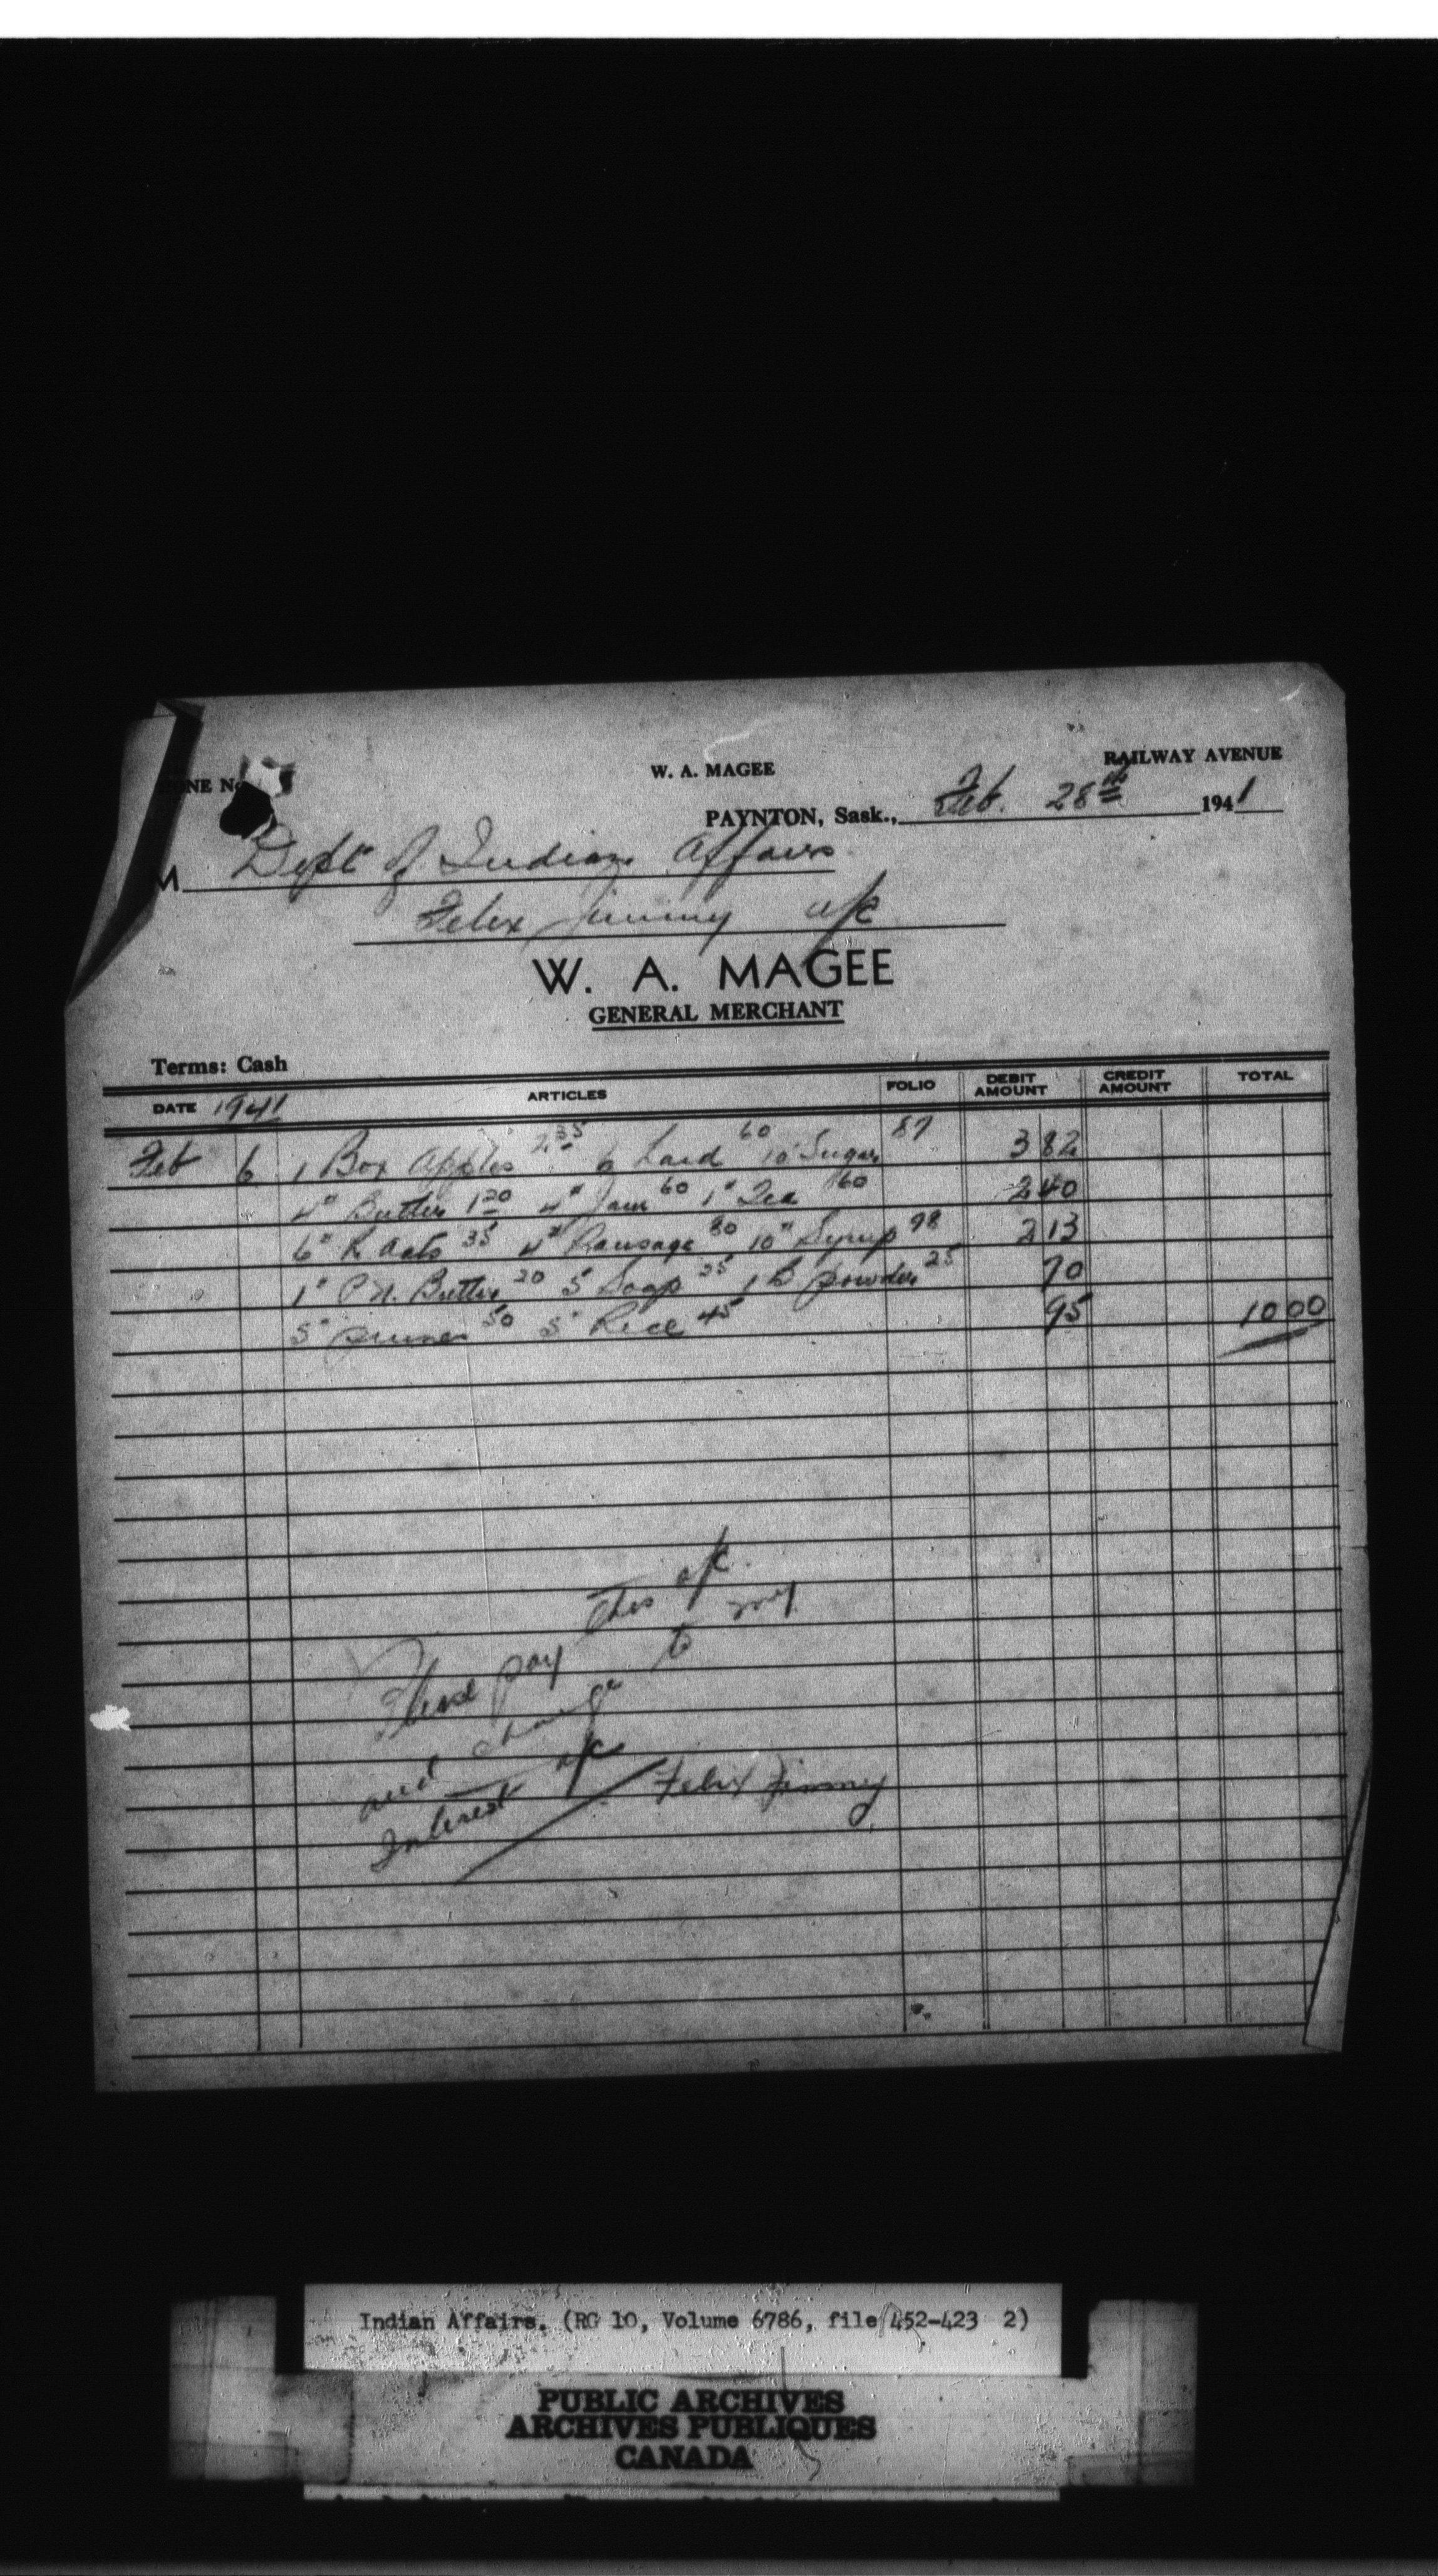 W. A. MAGEE RAILWAY AVENUE
PAYNTON, Sask., Feb. 28th 1941
M Dept of Indian Affairs
Felix Jimmy a/c
W. A. MAGEE
GENERAL MERCHANT
Terms: Cash
DATE 1941 ARTICLES FOLIO DEBIT AMOUNT CREDIT AMOUNT TOTAL
Feb 6 1 Box Apples 2 35 6 Lard 60 10 Sugar 87 3 82
4" Butter 1 20 4" Jam 60 1" Tea 60 2 40
6" R Oats 35 4" Sausage 80 10" Syrup 98 2 13
1" P.N. Butter 20 5 Soap 25 1 B Powder 25 70
5" prunes 50 5" Rice 45 95 10 00
Please pay this a/c
and charge to my
Interest a/c
Felix Jimmy
Indian Affairs. (RG 10, Volume 6786, file 452-423 2)
PUBLIC ARCHIVES
ARCHIVES PUBLIQUES
CANADA